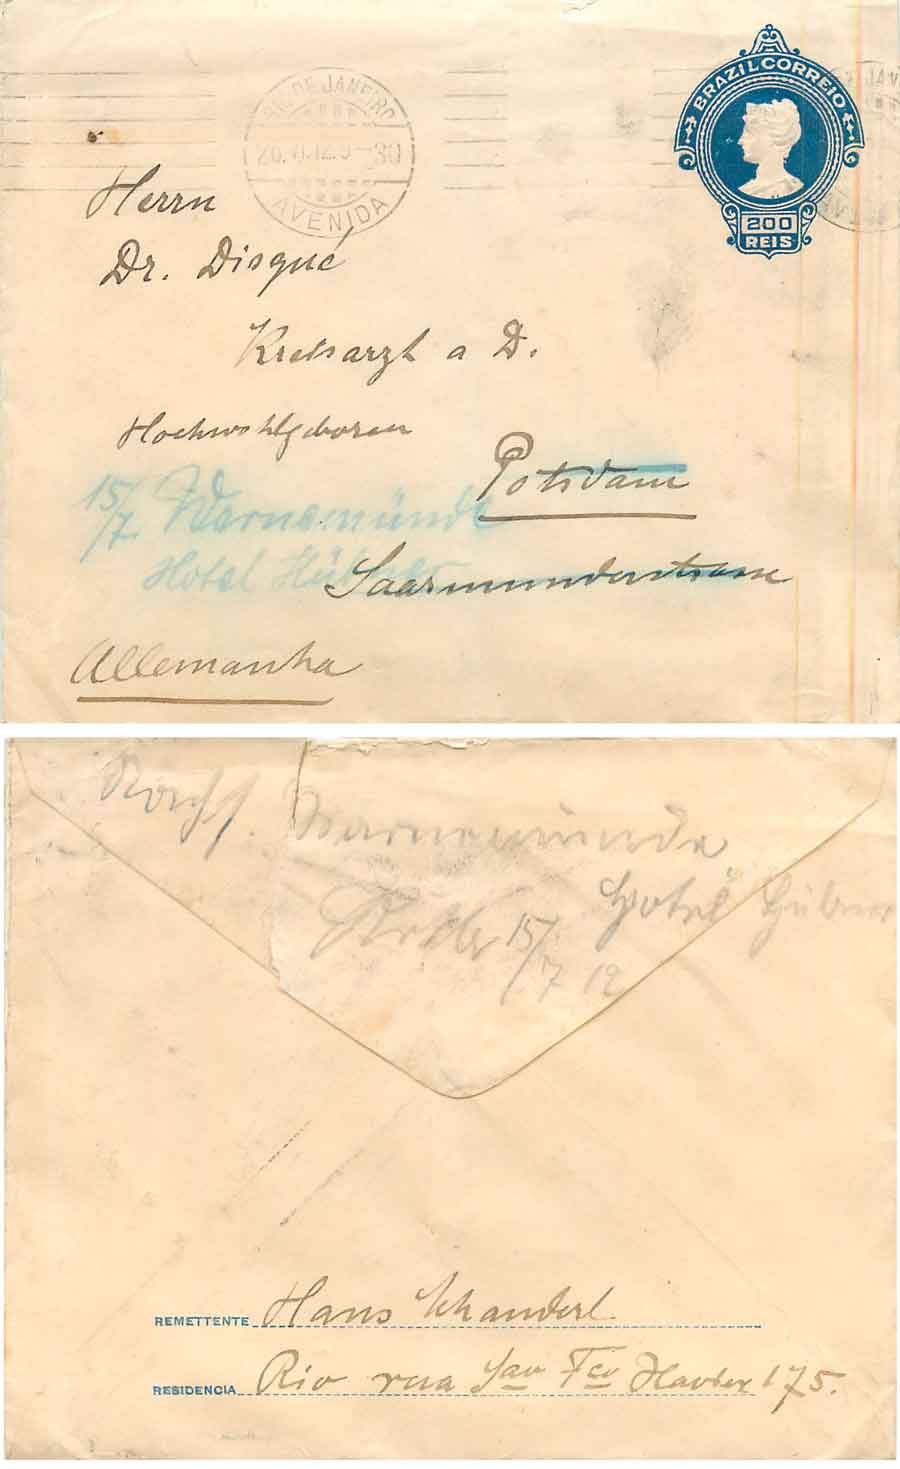 RIO DE JANEIRO
26.VI.12.9-30
AVENIDA
BRAZIL CORREIO
200
REIS
Herrn
Dr. Disqué
Kreisarzt a D.
Hochwohlgeboren
Potsdam
15/7. Warnemünde
Hotel Hübner
Saarmunderstrasse
Allemanha
Warnemünde
Hotel Hübner
15/7 12
REMETTENTE Hans
RESIDENCIA Rio rua Sao Fco Xavier 175.